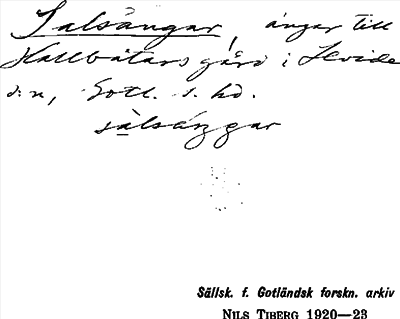 Salsängar, ängar till
Hallbåtars gård i Hvide
s:n, Gotl. s. hd.
sàlsáŋgar
Sällsk. f. Gotländsk forskn. arkiv
NILS TIBERG 1920—23